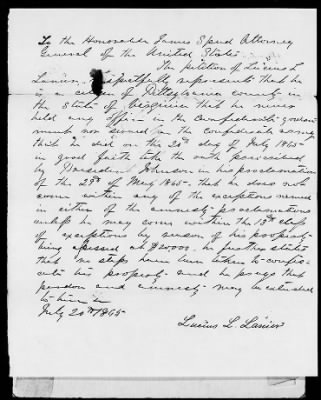 To the Honorable James Speed Attorney
General of the United States
The petition of Lucius L
Lanier, respectfully represents that he
is a citizen of Pittsylvania county in
the State of Virginia that he never
held any office in the Confederate govern
ment nor served in the Confederate army
that he did on the 20th day of July 1865
in good faith take the oath prescribed
by President Johnson in his proclamation
of the 29th of May 1865. that he does not
come within any of the exceptions named
in either of the amnesty proclamations
unless he may come within the 13th class
of exceptions by reason of his property
being assessed at $20000. he further states
that no steps have been taken to confis-
cate his property and he prays that
pardon and amnesty may be extended
to him
July 20th 1865
Lucius L. Lanier